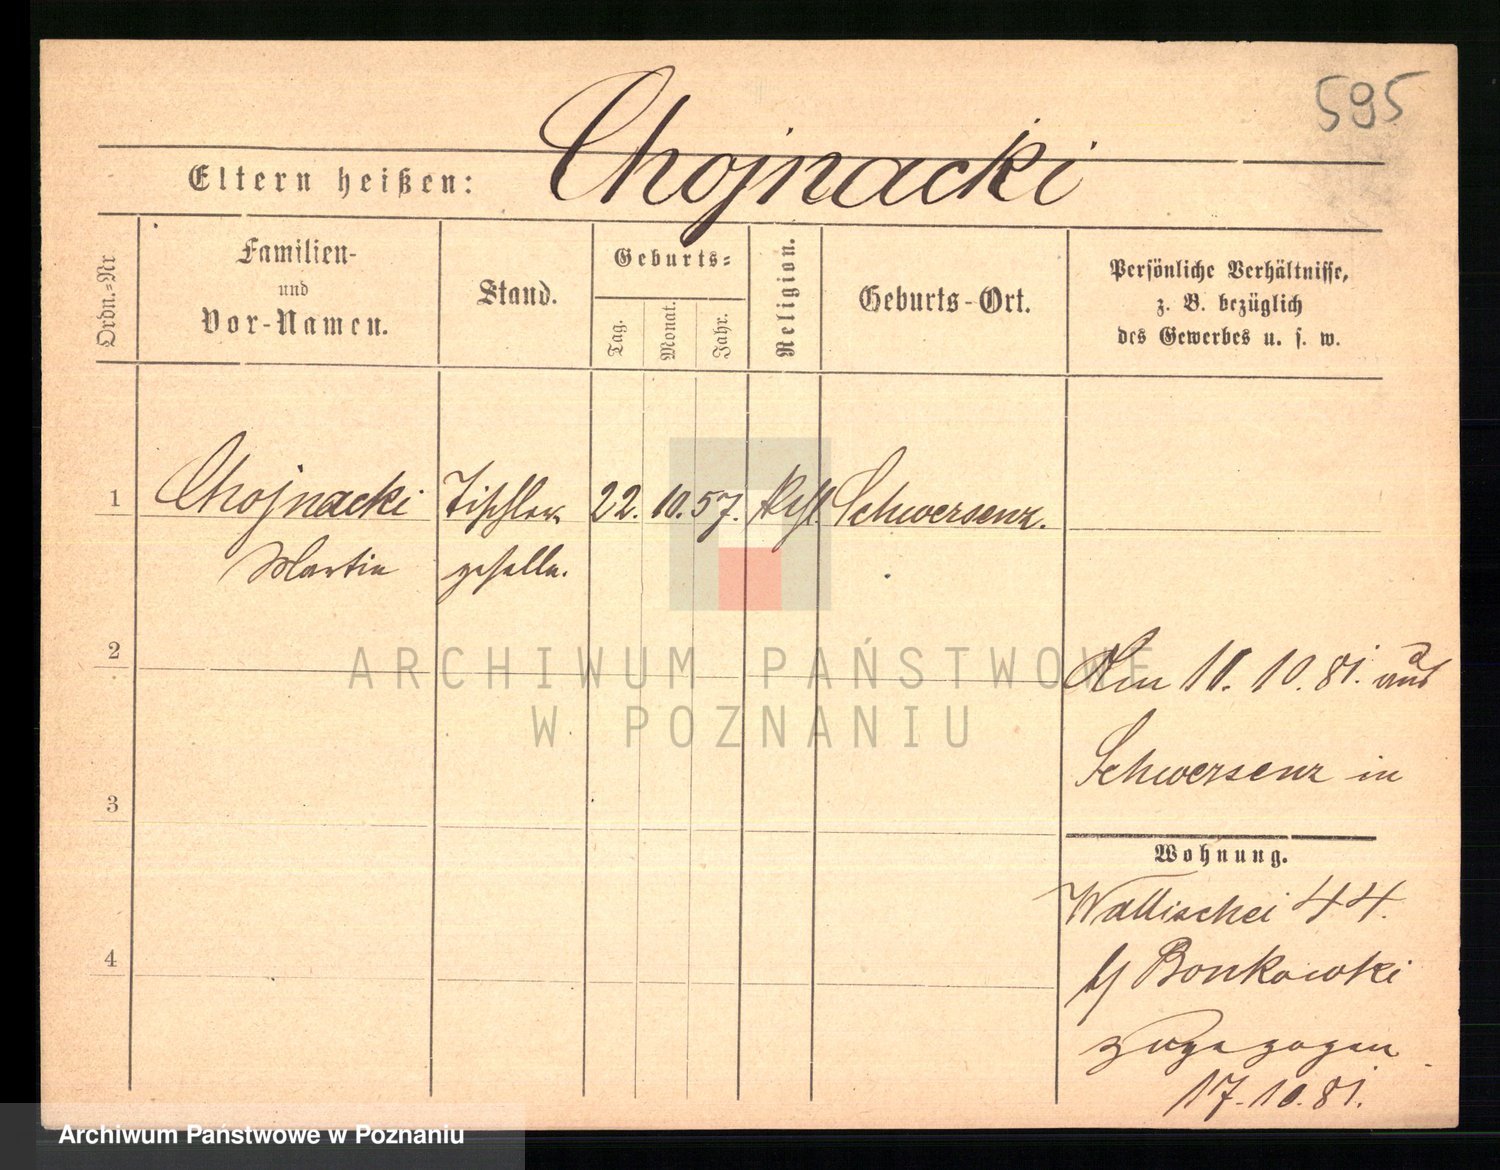 595
Chojnacki
Eltern heißen:
Ordn.=Nr
Familien-
und
Vor-Namen.
Stand.
Geburts=
Tag.
Monat.
Jahr.
Religion.
Geburts-Ort.
Persönliche Verhältnisse,
z. B. bezüglich
des Gewerbes u. s. w.
1 Chojnacki Tischler 22. 10. 57. Kth. Schwersenz.
Martin geselle.
2
Am 11. 10. 81. aus
Schwersenz in
3
Wohnung.
Wallischei 44.
b/ Bonkowski
4
zugezogen
17. 10. 81.
ARCHIWUM PAŃSTWOWE
W POZNANIU
Archiwum Państwowe w Poznaniu